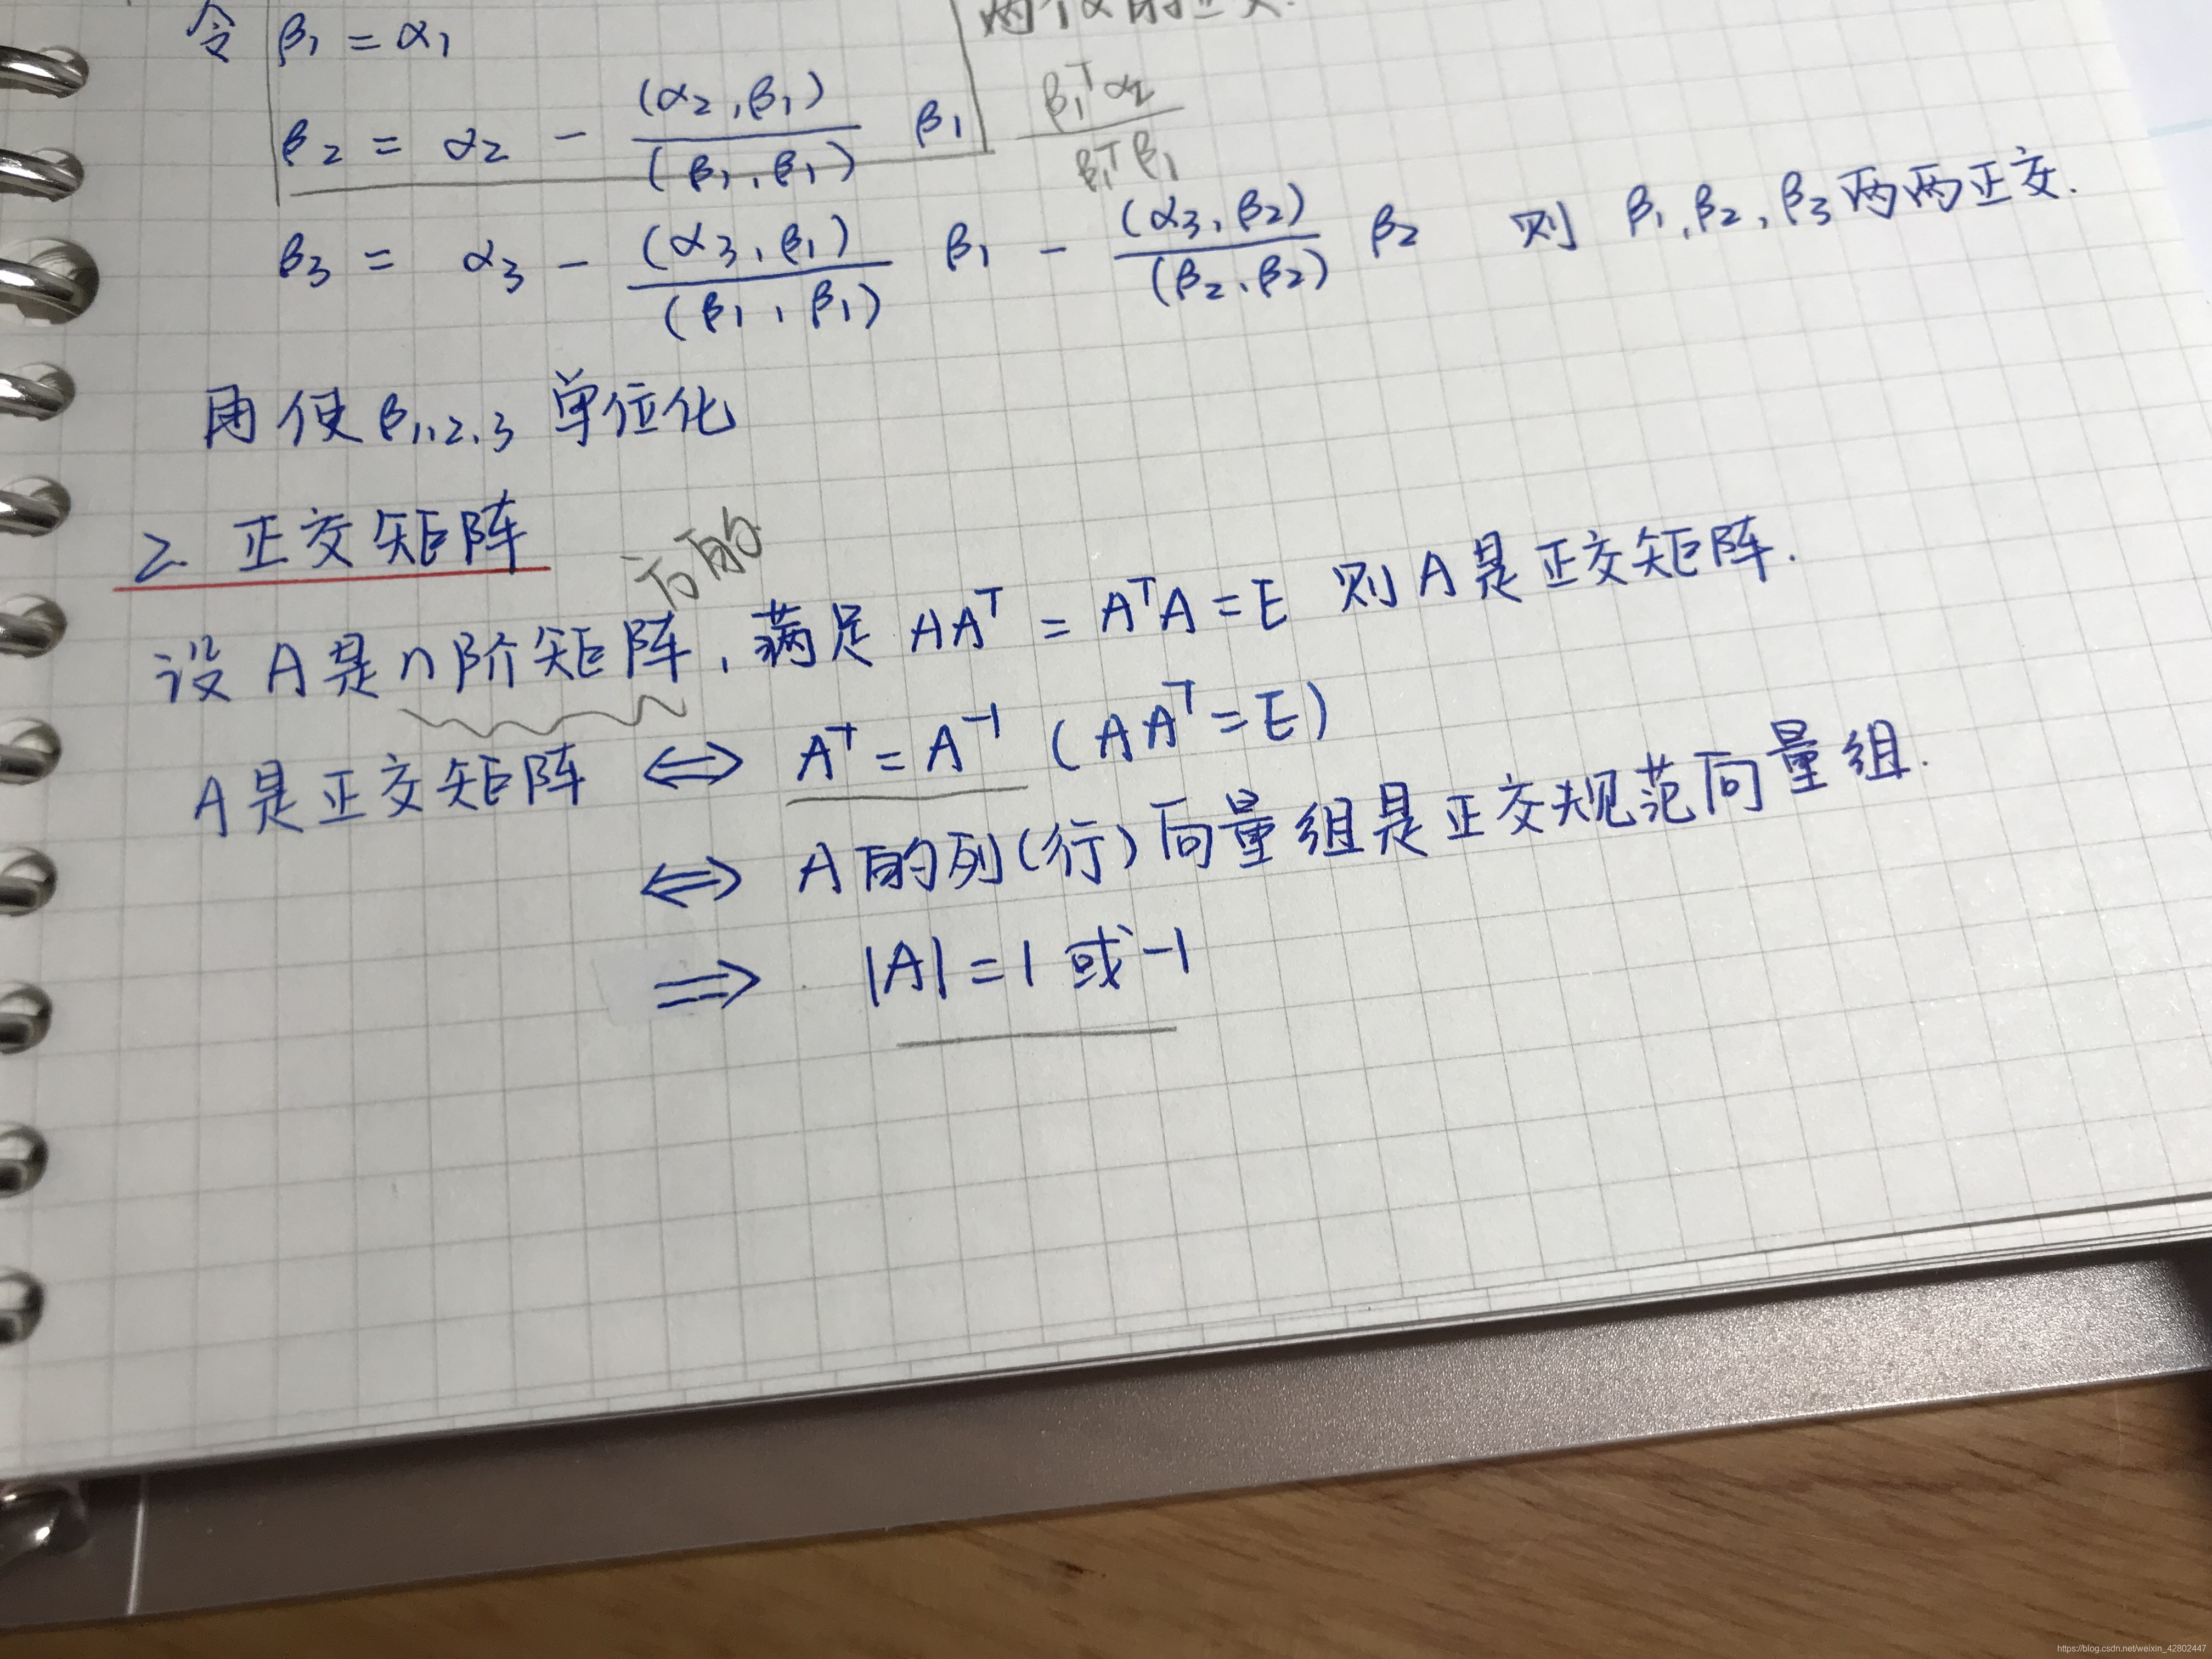 令 β₁ = α₁
β₂ = α₂ - (α₂,β₁)/(β₁,β₁) β₁ β₁ᵀα₂/β₁ᵀβ₁
β₃ = α₃ - (α₃,β₁)/(β₁,β₁) β₁ - (α₃,β₂)/(β₂,β₂) β₂ 则 β₁,β₂,β₃两两正交.
再使β₁,₂,₃ 单位化
2. 正交矩阵
方的
设 A是n阶矩阵, 满足 AAᵀ = AᵀA = E 则 A是正交矩阵.
A是正交矩阵 ⟺ Aᵀ = A⁻¹ (AAᵀ = E)
⟺ A的列(行)向量组是正交规范向量组.
⟹ |A| = 1 或 -1
https://blog.csdn.net/weixin_42802447